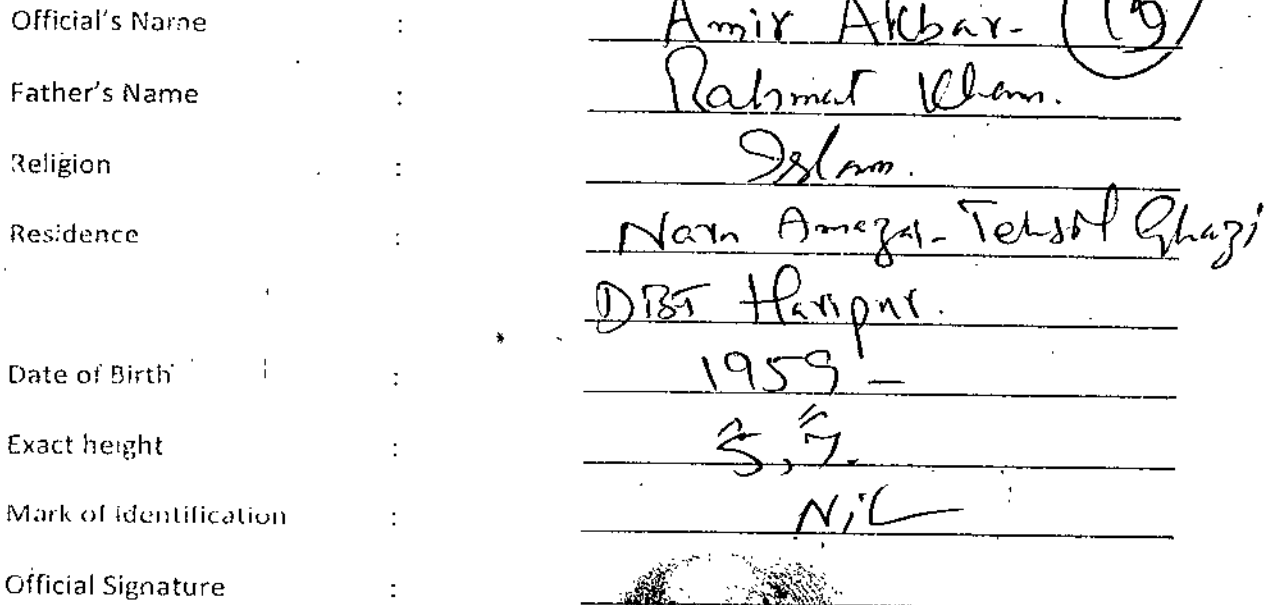 Official's Name : Amir Akbar- (19)
Father's Name : Rahmat Khan.
Religion : Islam.
Residence : Nara Amazai- Tehsil Ghazi
DIST Haripur.
Date of Birth : 1959 -
Exact height : 5', 7".
Mark of Identification : Nil
Official Signature :